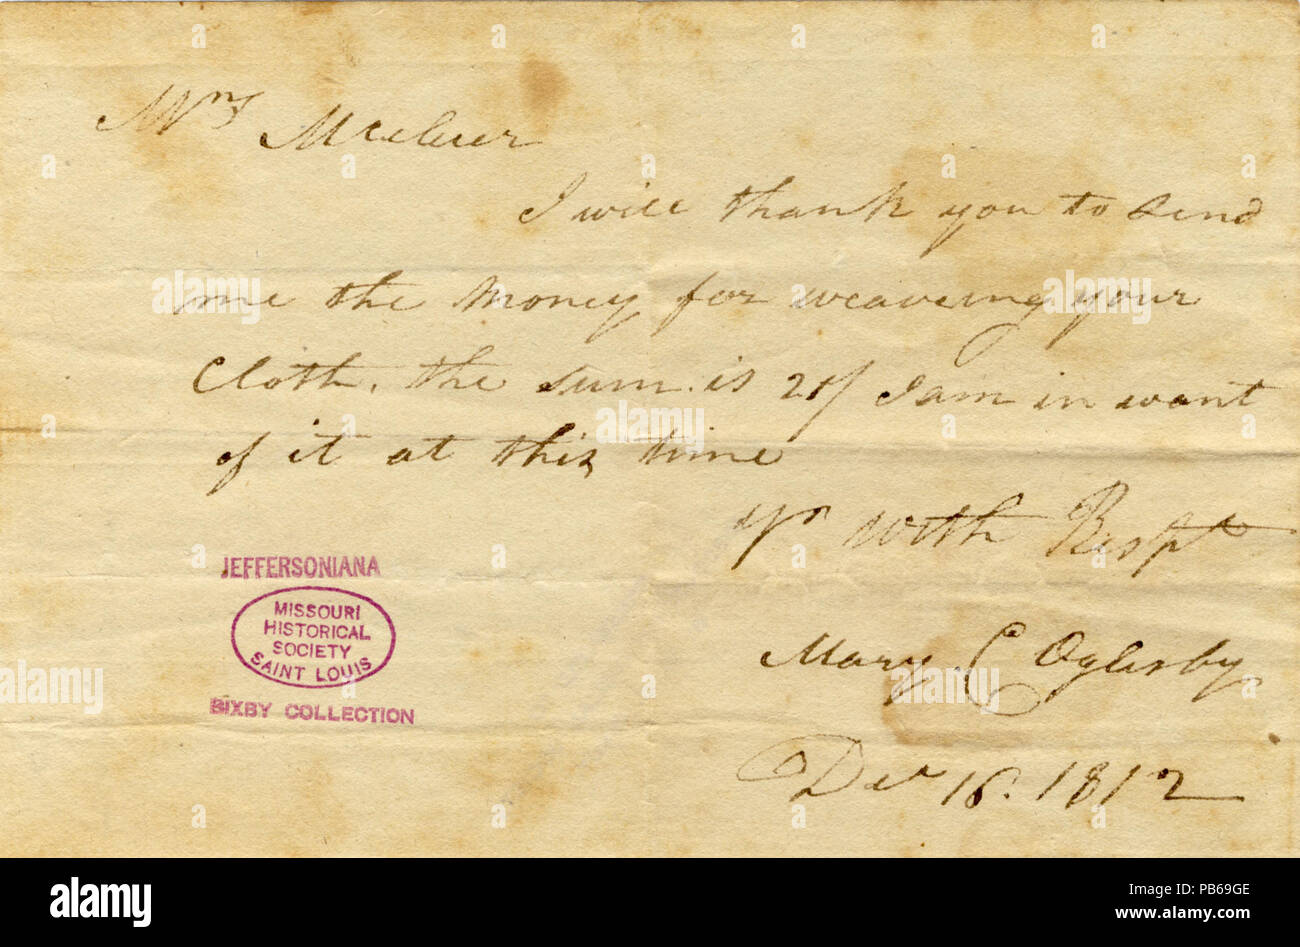 Mrs Mcclure
I will thank you to send
me the money for weaveing your
Cloth. the sum is 21/ I am in want
of it at this time
Yr with Respt
Mary C Oglesby
Decr 16. 1812
JEFFERSONIANA
MISSOURI
HISTORICAL
SOCIETY
SAINT LOUIS
BIXBY COLLECTION
alamy
Image ID: PB69GE
www.alamy.com